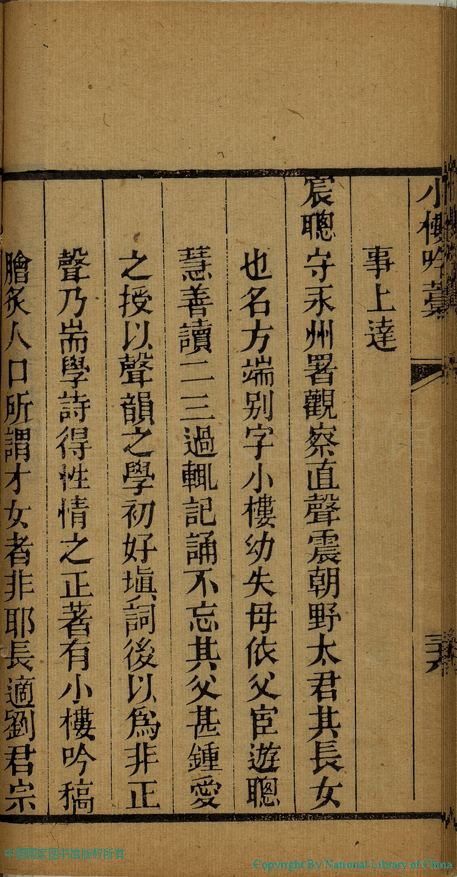 小樓吟藁
事上達
宸聰守永州署觀察直聲震朝野太君其長女
也名方端别字小樓幼失母依父宦遊聰
慧善讀二三過輒記誦不忘其父甚鍾愛
之授以聲韻之學初好塡詞後以爲非正
聲乃耑學詩得性情之正著有小樓吟稿
膾炙人口所謂才女者非耶長適劉君宗
中國国家图书馆版权所有
Copyright By National Library of China